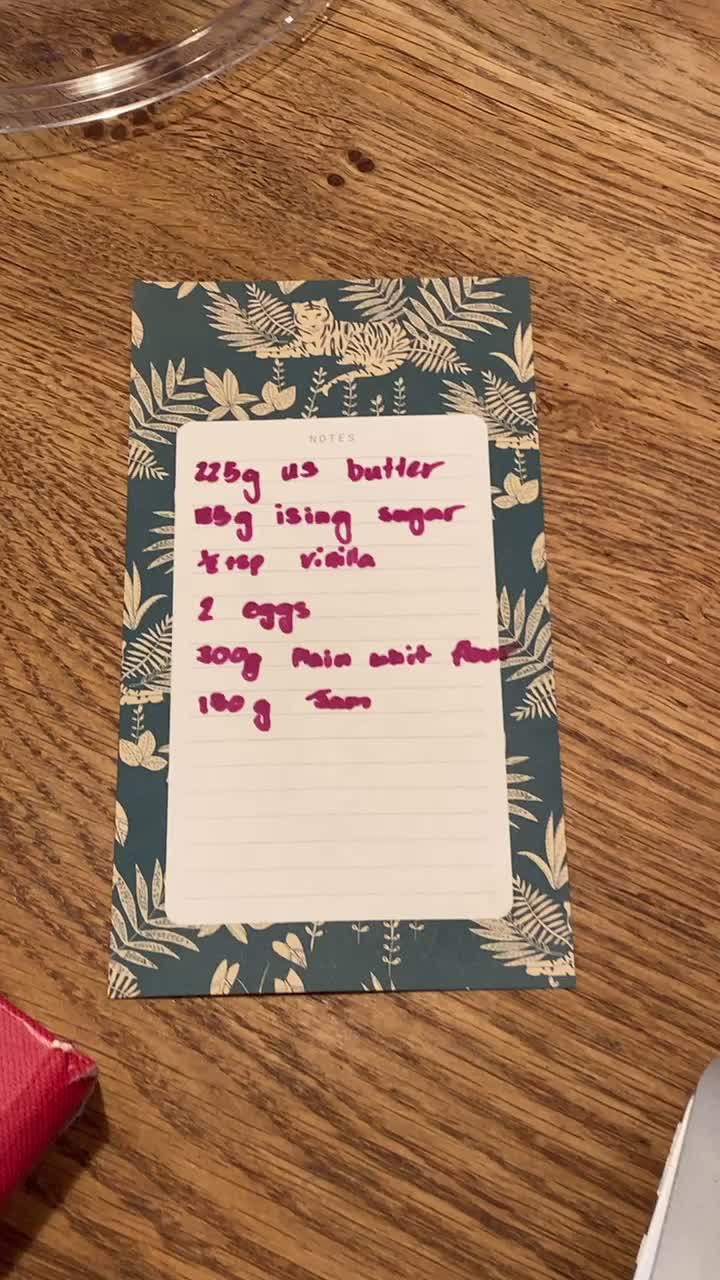 NOTES
225g us butter
g ising sugar
½ tsp vinilla
2 eggs
300g Plain whit flour
180g Jam